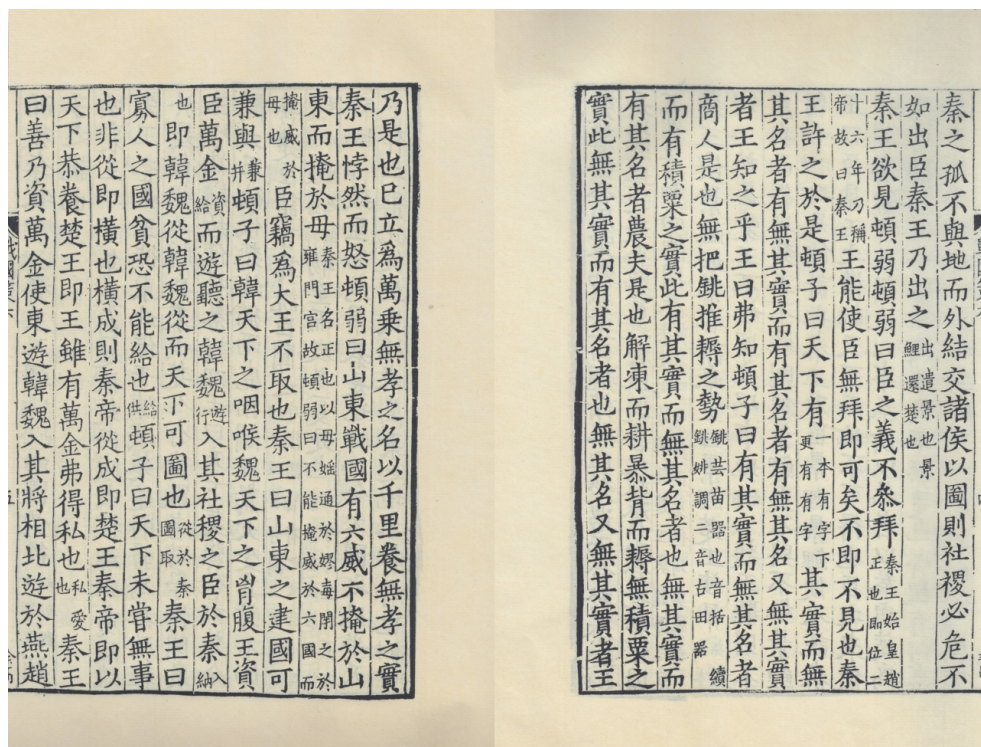 秦之孤不與地而外結交諸侯以圖則社稷必危不
如出臣秦王乃出之出遣景也景鯉還楚也
秦王欲見頓弱頓弱曰臣之義不叅拜秦王始皇趙正也即位二
十六年乃稱帝故曰秦王王能使臣無拜即可矣不即不見也秦
王許之於是頓子曰天下有一本有字下更有有字其實而無
其名者有無其實而有其名者有無其名又無其實
者王知之乎王曰弗知頓子曰有其實而無其名者
商人是也無把銚推耨之勢銚芸苗器也音括續銚姚調二音古田器
而有積粟之實此有其實而無其名者也無其實而
有其名者農夫是也解凍而耕暴背而耨無積粟之
實此無其實而有其名者也無其名又無其實者王
乃是也已立爲萬乗無孝之名以千里養無孝之實
秦王悖然而怒頓弱曰山東戰國有六威不掩於山
東而掩於母秦王名正也以母婬通於嫪毐閉之於雍門宫故頓弱曰不能掩威於六國而
掩威於母也臣竊爲大王不取也秦王曰山東之建國可
兼與兼并頓子曰韓天下之咽喉魏天下之胷腹王資
臣萬金資給而遊聽之韓魏遊行入其社稷之臣於秦入納
也即韓魏從韓魏從而天下可圖也從於秦圖取秦王曰
寡人之國貧恐不能給也給供頓子曰天下未嘗無事
也非從即橫也橫成則秦帝從成即楚王秦帝即以
天下恭養楚王即王雖有萬金弗得私也私愛也秦王
曰善乃資萬金使東遊韓魏入其將相北遊於燕趙
五